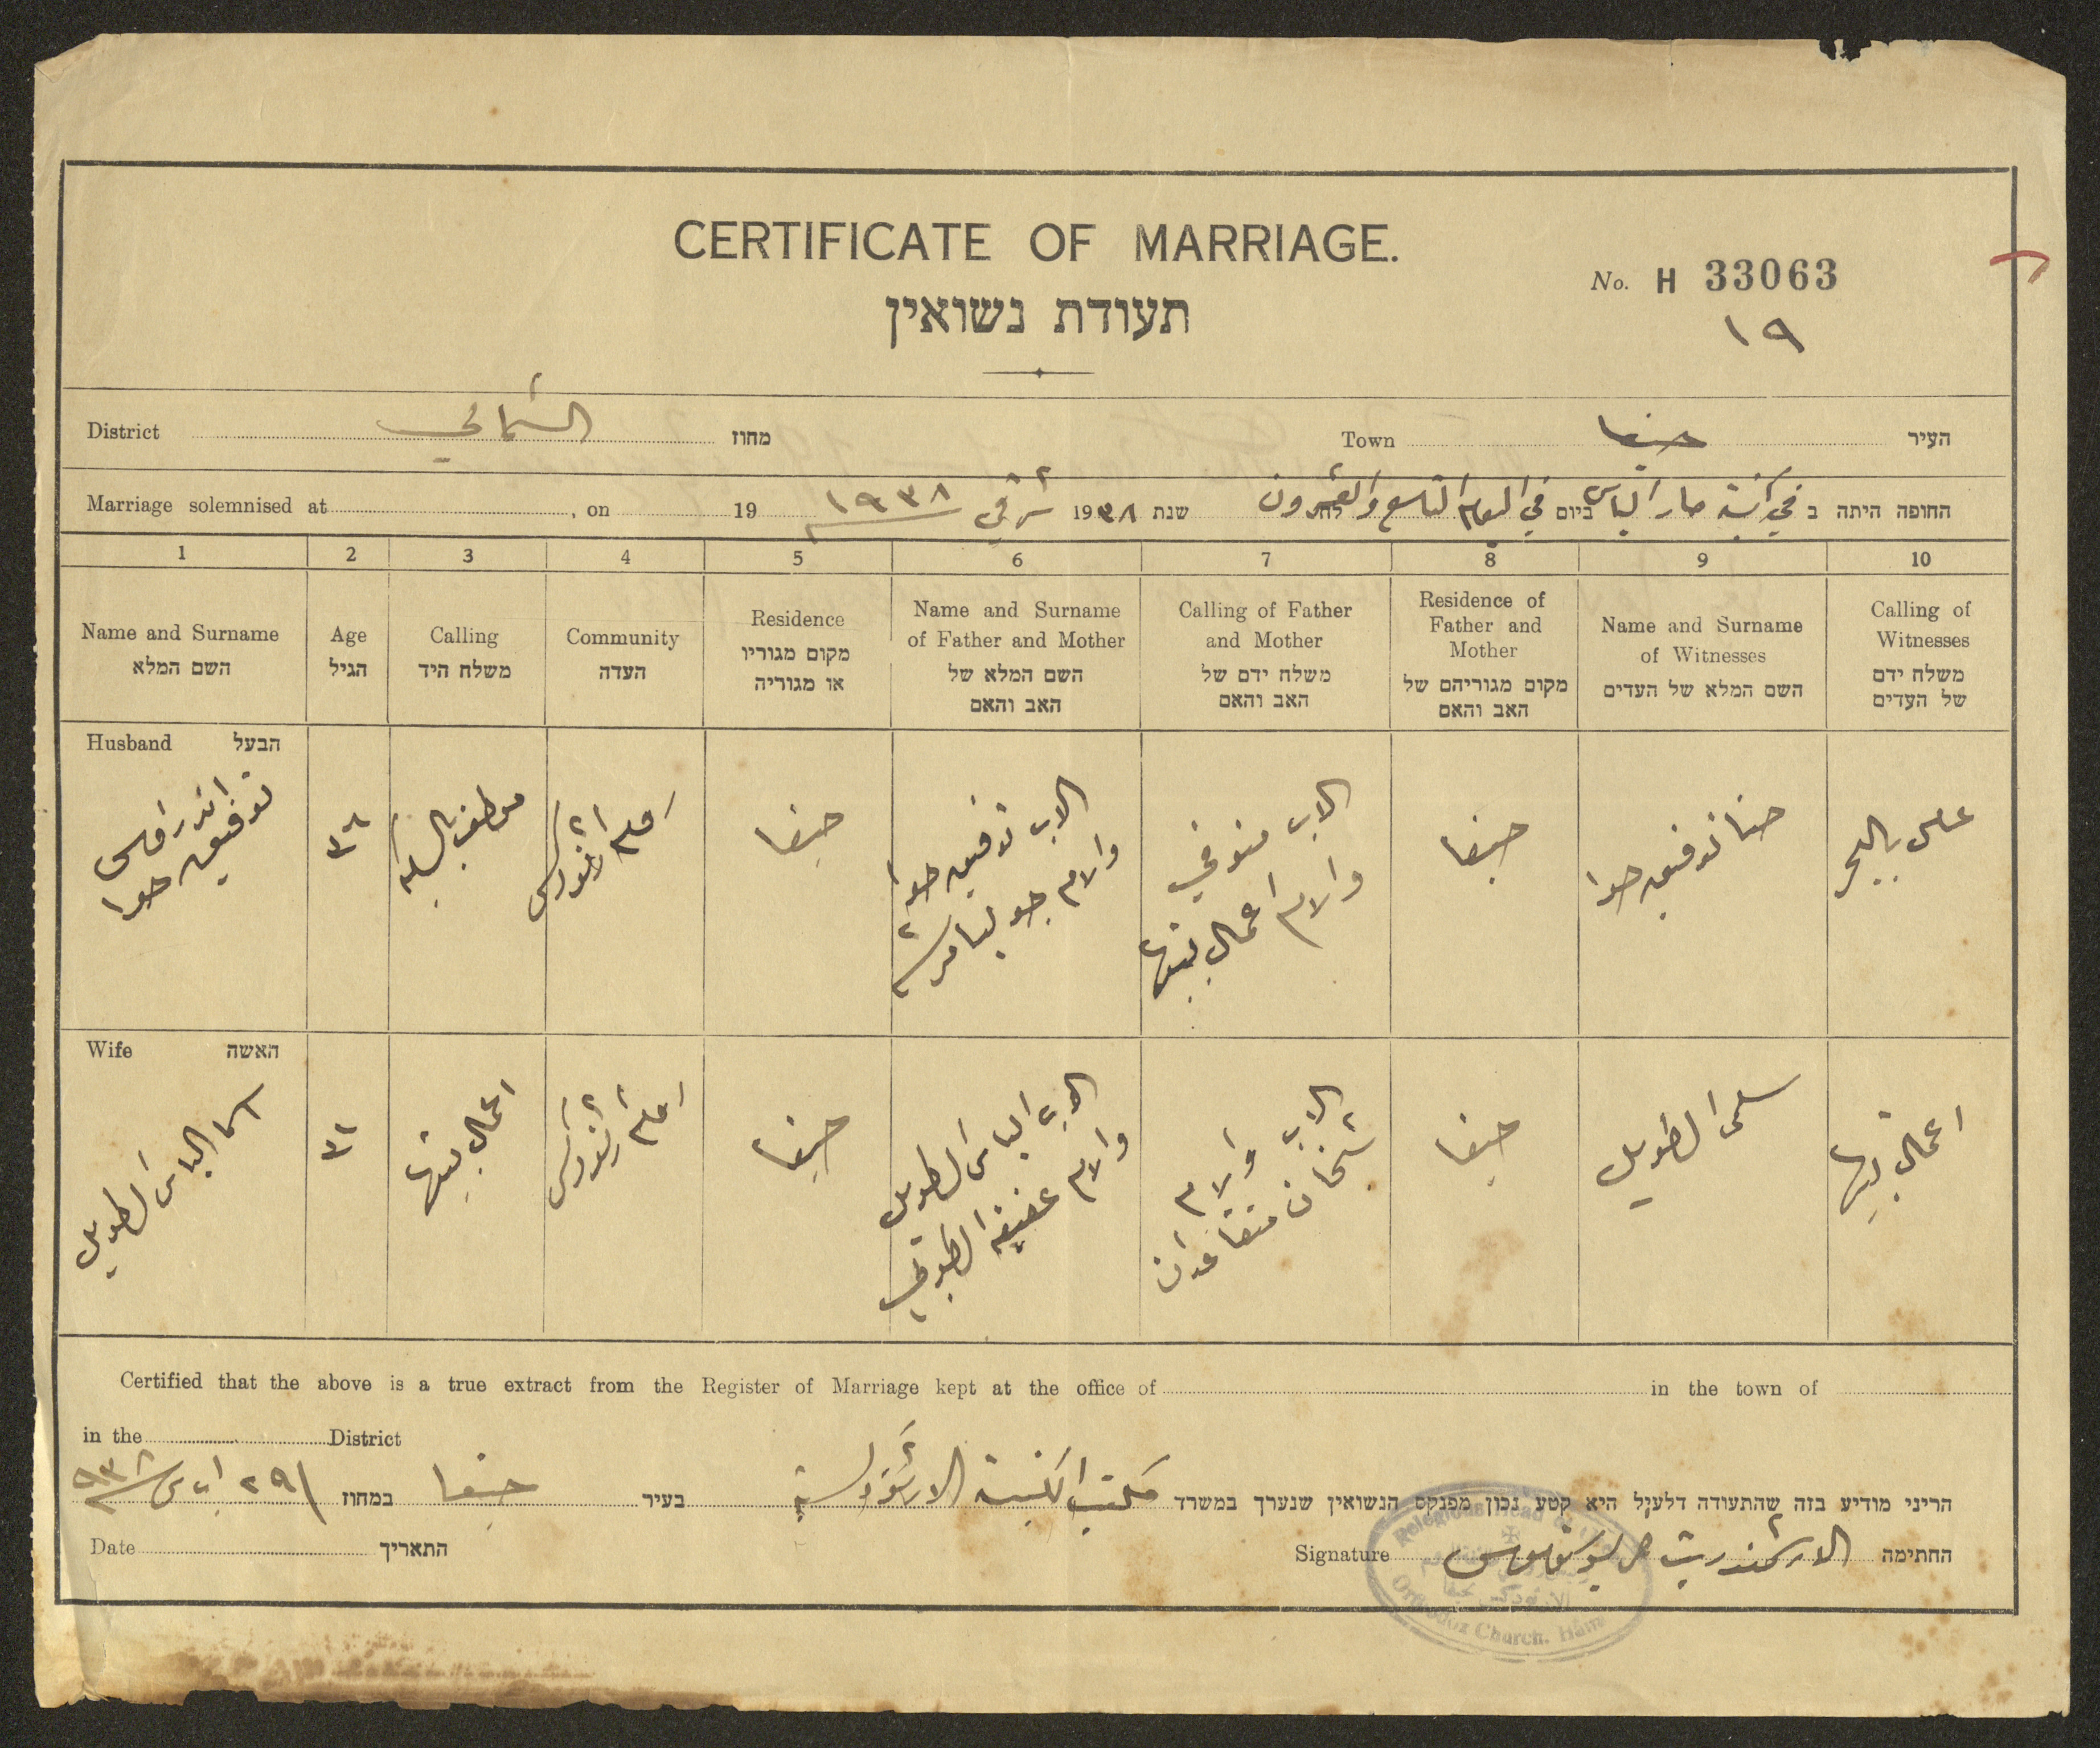 CERTIFICATE OF MARRIAGE.
No. H 33063
תעודת נשואין
١٩
District الشمالي מחוז Town حيفا העיר
Marriage solemnised at , on 19 ١٩٣٨ شرقي 19٣٨ שנת في اليوم التاسع والعشرون ביום في كنيسة مار الياس החופה היתה ב
1 2 3 4 5 6 7 8 9 10
Name and Surname
השם המלא
Age
הגיל
Calling
משלח היד
Community
העדה
Residence
מקום מגוריו
או מגוריה
Name and Surname
of Father and Mother
השם המלא של
האב והאם
Calling of Father
and Mother
משלח ידם של
האב והאם
Residence of
Father and
Mother
מקום מגוריהם של
האב והאם
Name and Surname
of Witnesses
השם המלא של העדים
Calling of
Witnesses
משלח ידם
של העדים
Husband הבעל
اندراوس
توفيق حوا
٣٨
موظف
حيفا
الاب توفيق حوا
والام جوليا
الاب متوفي
والام اعمال بيتها
حيفا
حنا توفيق حوا
Wife האשה
اسما الياس الطويل
٣١
اعمال بيتها
حيفا
الاب الياس الطويل
والام عفيفه
الاب والام
متقاعدان
حيفا
سلمى الطويل
اعمال بيتها
Certified that the above is a true extract from the Register of Marriage kept at the office of in the town of
in the District
הריני מודיע בזה שהתעודה דלעיל היא קטע נכון מפנקס הנשואין שנערך במשרד مكتب الكنيسة الارثوذكسية בעיר حيفا במחוז
Date התאריך Signature الارشمندريت החתימה
Religious Head
Orthodox Church. Haifa